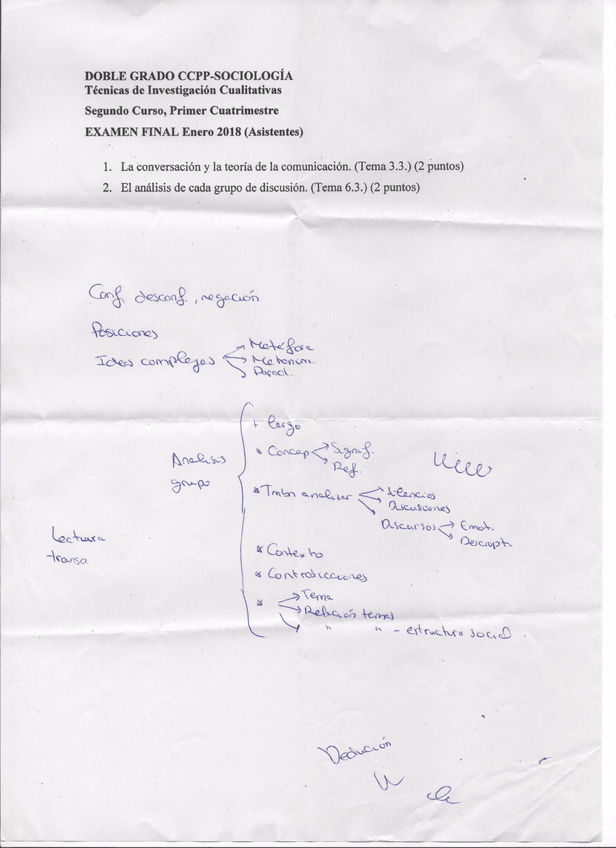 DOBLE GRADO CCPP-SOCIOLOGÍA
Técnicas de Investigación Cualitativas
Segundo Curso, Primer Cuatrimestre
EXAMEN FINAL Enero 2018 (Asistentes)
1. La conversación y la teoría de la comunicación. (Tema 3.3.) (2 puntos)
2. El análisis de cada grupo de discusión. (Tema 6.3.) (2 puntos)
Conf, desconf, negación
Posiciones
Ideas complejas
Metáfora
Metonim.
Parad.
Analisis
grupo
+ largo
* Concep
Signif.
Ref.
* Tmbn analizar
Silencios
Discusiones
Discursos
Emot.
Descrupt.
* Contexto
* Contradicciones
* Tema
Relación temas
" " - estructura social
Lectura
transa
Dedución